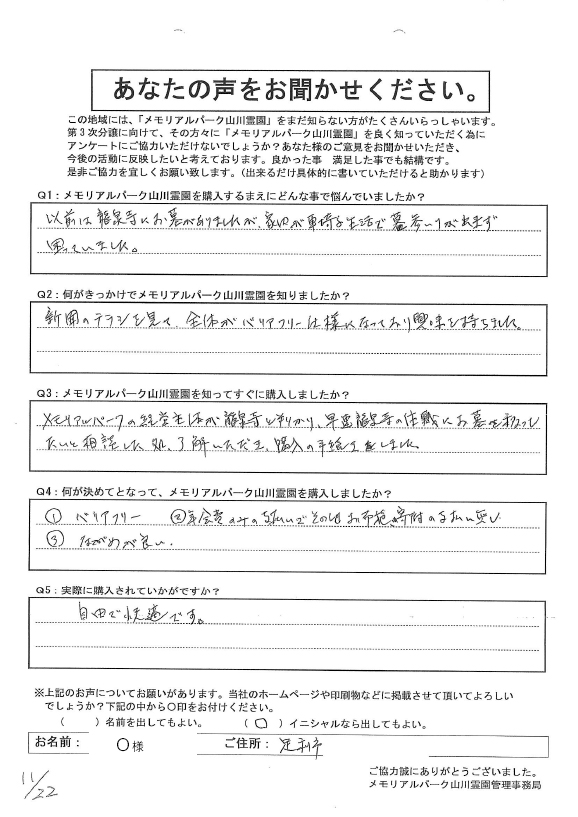 あなたの声をお聞かせください。
この地域には、「メモリアルパーク山川霊園」をまだ知らない方がたくさんいらっしゃいます。
第3次分譲に向けて、その方々に「メモリアルパーク山川霊園」を良く知っていただく為に
アンケートにご協力いただけないでしょうか？あなた様のご意見をお聞かせいただき、
今後の活動に反映したいと考えております。良かった事　満足した事でも結構です。
是非ご協力を宜しくお願い致します。（出来るだけ具体的に書いていただけると助かります）
Q1：メモリアルパーク山川霊園を購入するまえにどんな事で悩んでいましたか？
以前は龍泉寺にお墓がありましたが、家内が車椅子生活で墓参りが出来ず
困っていました。
Q2：何がきっかけでメモリアルパーク山川霊園を知りましたか？
新聞のチラシを見て、全体がバリアフリー仕様になっており興味を持ちました。
Q3：メモリアルパーク山川霊園を知ってすぐに購入しましたか？
メモリアルパークの経営主体が龍泉寺と判り、早速龍泉寺の住職にお墓を移
たいと相談した処、了解いただき、購入の手続きをしました。
Q4：何が決めてとなって、メモリアルパーク山川霊園を購入しましたか？
① バリアフリー　②年会費のみの支払いでその他お布施、寄附の支払い無い
③ ながめが良い。
Q5：実際に購入されていかがですか？
自由で快適です。
※上記のお声についてお願いがあります。当社のホームページや印刷物などに掲載させて頂いてよろしい
でしょうか？下記の中から○印をお付けください。
（　　）名前を出してもよい。　（ ○ ）イニシャルなら出してもよい。
お名前：　O様　ご住所：　足利市
11/22
ご協力誠にありがとうございました。
メモリアルパーク山川霊園管理事務局